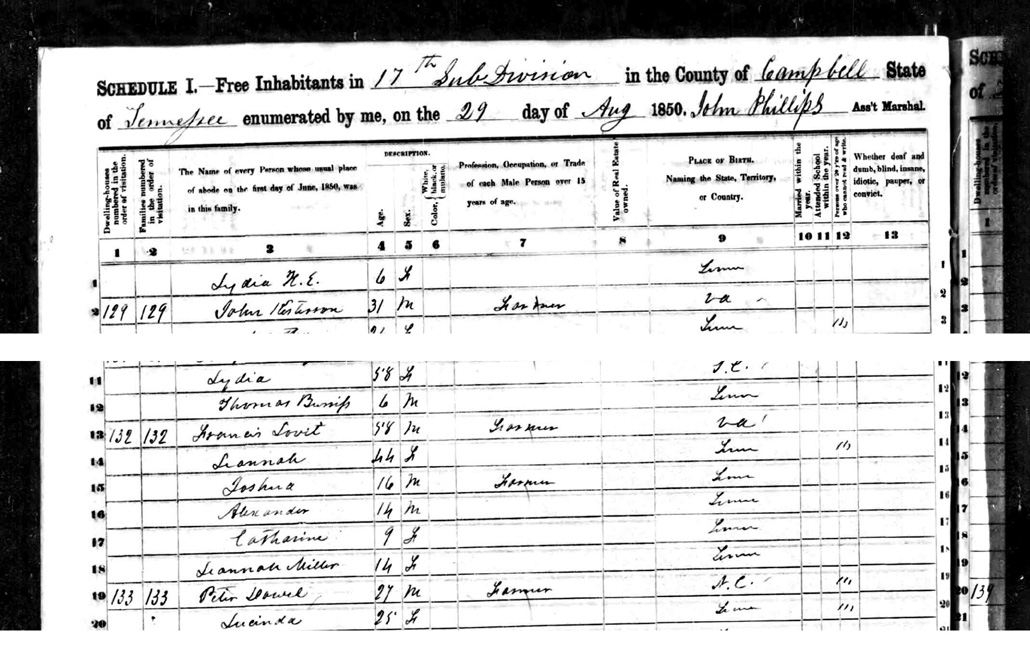 SCHEDULE I.—Free Inhabitants in 17th Sub Division in the County of Campbell State
of Tennessee enumerated by me, on the 29 day of Aug 1850. John Phillips Ass't Marshal.
Dwelling-houses numbered in the order of visitation.
Families numbered in the order of visitation.
The Name of every Person whose usual place of abode on the first day of June, 1850, was in this family.
DESCRIPTION.
Age.
Sex.
Color, White, black, or mulatto.
Profession, Occupation, or Trade of each Male Person over 15 years of age.
Value of Real Estate owned.
PLACE OF BIRTH. Naming the State, Territory, or Country.
Married within the year.
Attended School within the year.
Persons over 20 y'rs of age who cannot read & write.
Whether deaf and dumb, blind, insane, idiotic, pauper, or convict.
1 2 3 4 5 6 7 8 9 10 11 12 13
1 Lydia H. E. 6 F Tenn 1
2 129 129 John 31 M Farmer Va 2
Tenn 3
11 Lydia 58 F S.C. 11
12 Thomas 6 M Tenn 12
13 132 132 Francis Lovit 58 M Farmer Va 13
14 Leannah 44 F Tenn 14
15 Joshua 16 M Farmer Tenn 15
16 Alexander 14 M Tenn 16
17 Catharine 9 F Tenn 17
18 Leannah Miller 14 F Tenn 18
19 133 133 Peter Dowel 27 M Farmer N.C. 19
20 Lucinda 25 F Tenn 20